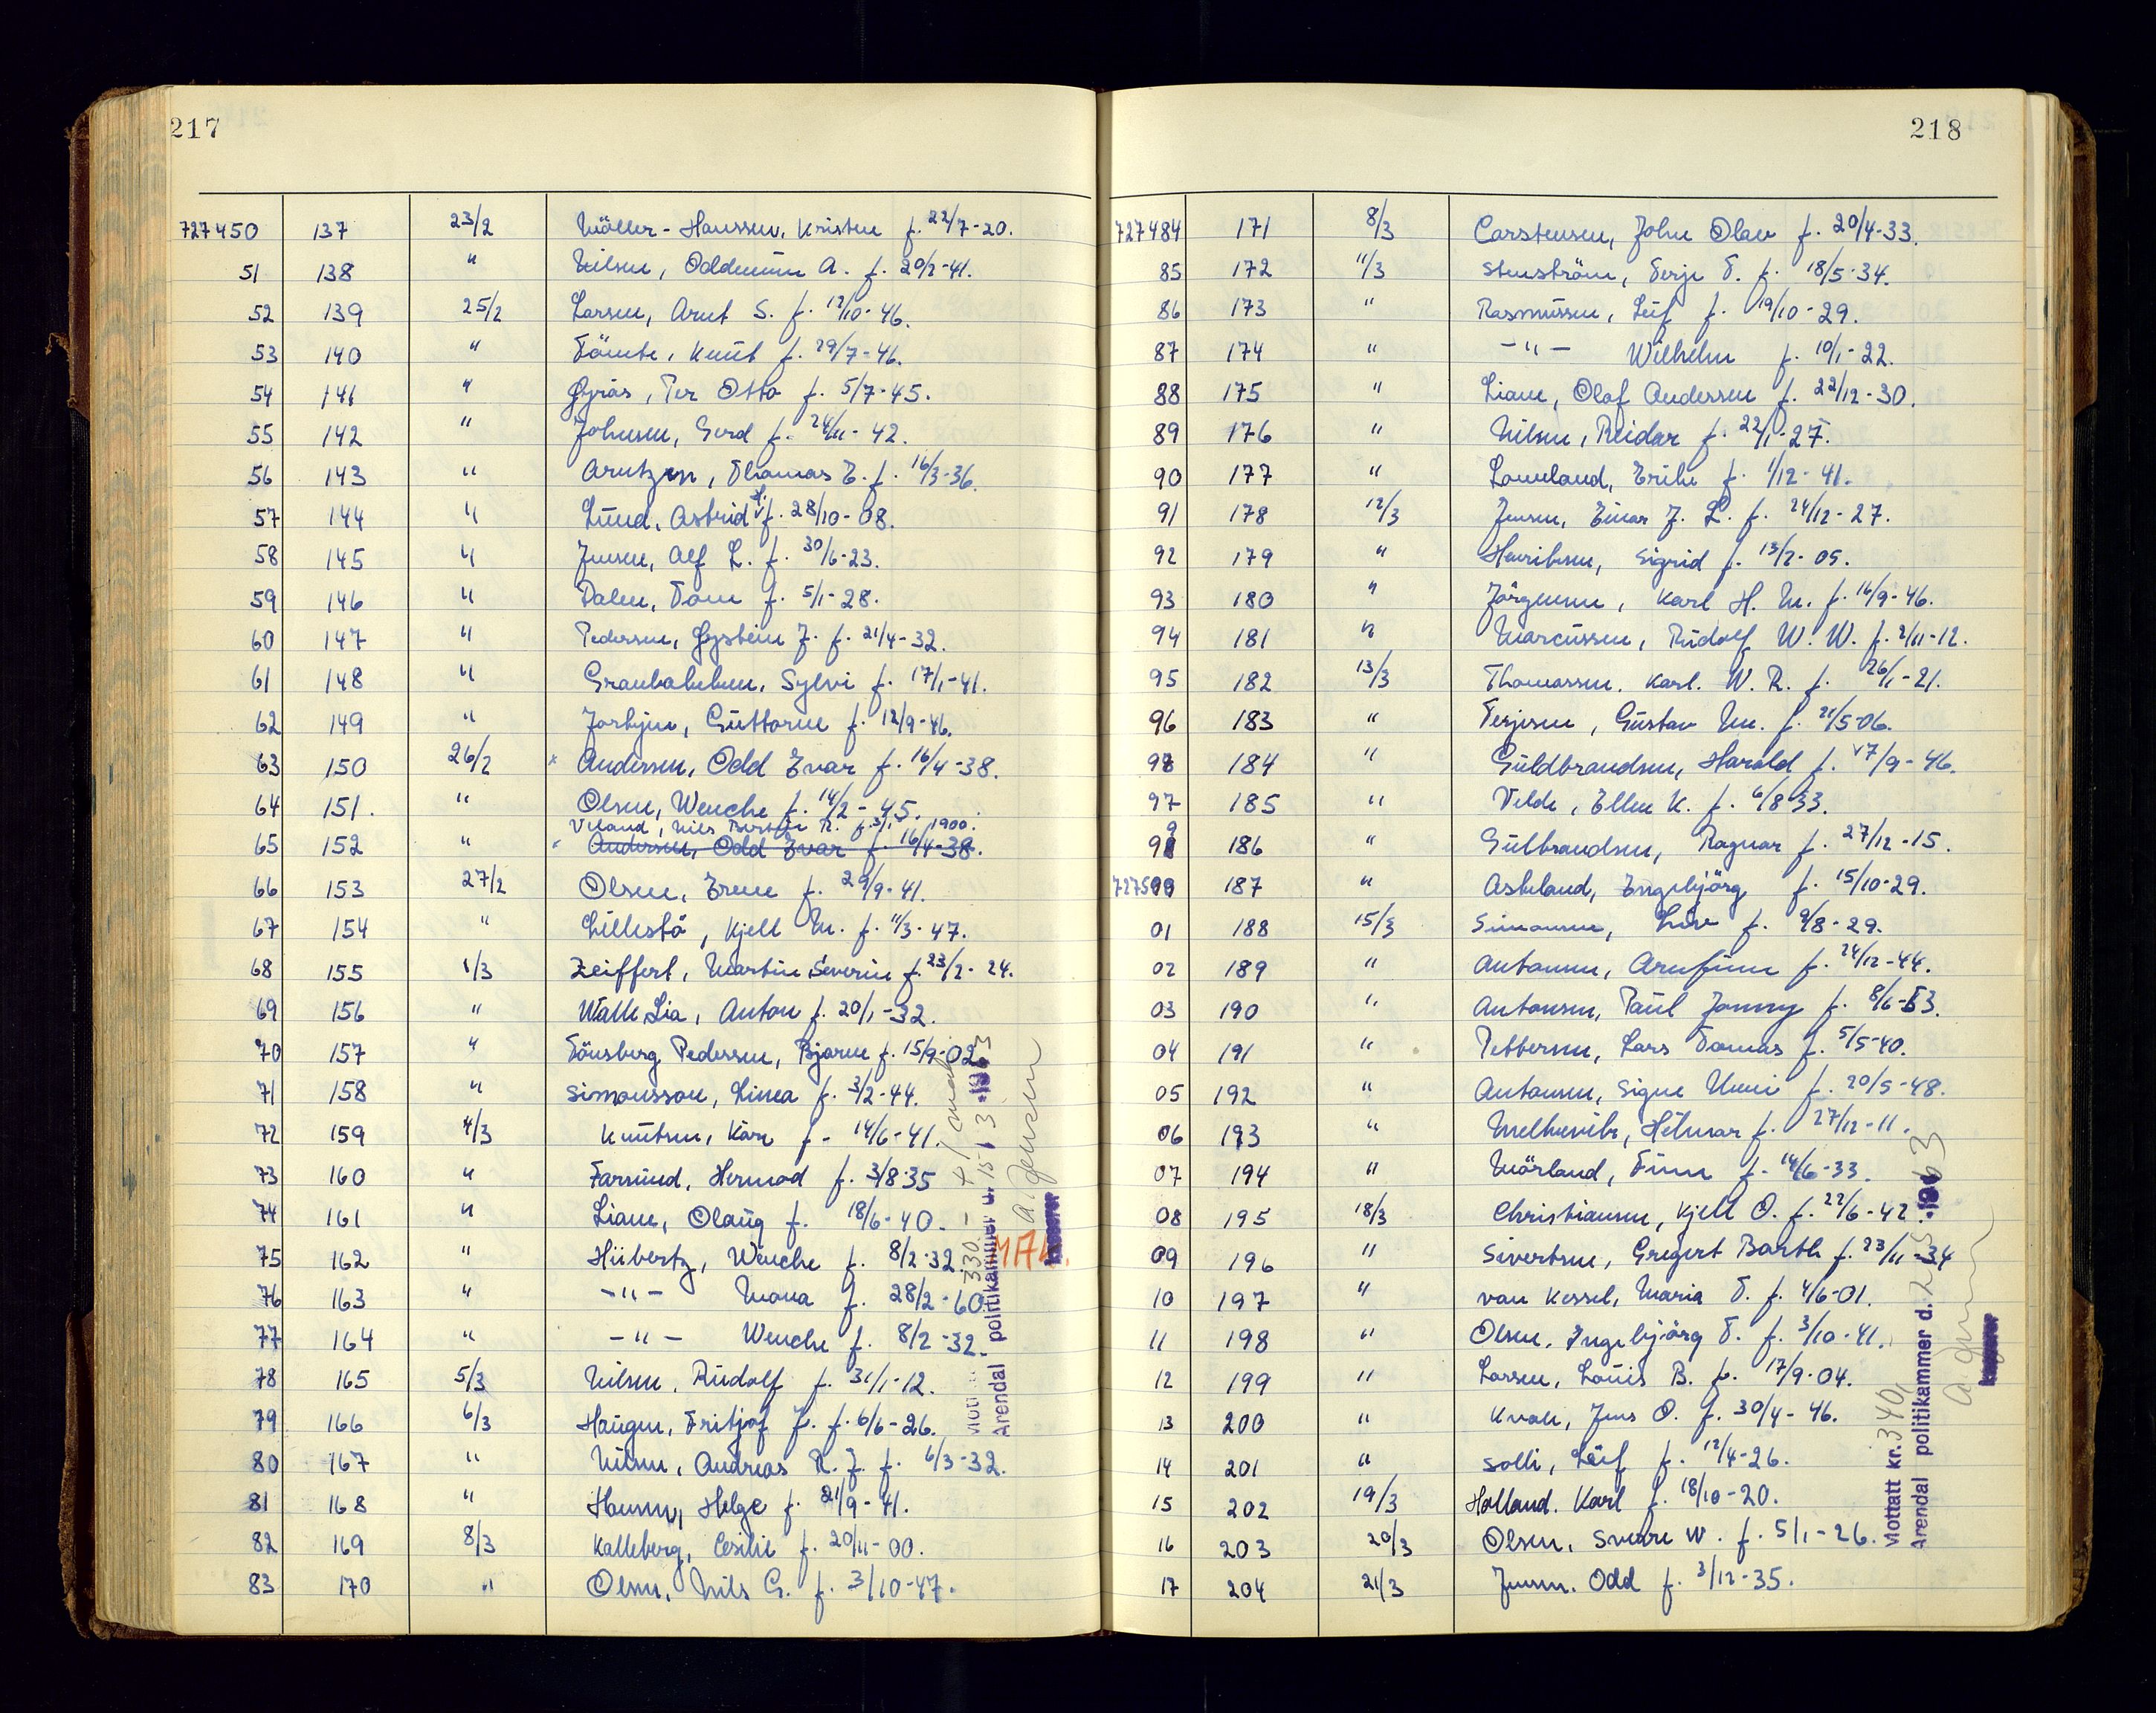 217
727450 137 23/2 Möller-Hanssen, Kristen f. 22/7-20.
51 138 " Nilsen, Oddmunn A. f. 20/2-41.
52 139 25/2 Larsen, Arnt S. f. 12/10-46.
53 140 " Tömte, Knut f. 29/7-46.
54 141 " Gjerås, Per Otto f. 5/7-45.
55 142 " Johnsen, Gerd f. 24/11-42.
56 143 " Arntzen, Thomas E. f. 16/3-36.
57 144 " Lund, Astrid f. 28/10-08.
58 145 " Jensen, Alf L. f. 30/6-23.
59 146 " Dalen, Tom f. 5/1-28.
60 147 " Pedersen, Øystein J. f. 21/4-32.
61 148 " Granbakken, Sylvi f. 17/1-41.
62 149 " Jorkjen, Guttorm f. 12/9-46.
63 150 26/2 x Andersen, Odd Ivar f. 16/4-38.
64 151. " Olsen, Wenche f. 14/2-45.
Veland, Nils R. f. 3/1 1900.
65 152 " Andersen, Odd Ivar f. 16/4-38.
66 153 27/2 Olsen, Irene f. 29/9-41.
67 154 " Lillestö, Kjell M. f. 11/3-47.
68 155 1/3 Zeiffert, Martin Severin f. 23/2-24.
69 156 " Walle Lia, Anton f. 20/1-32.
70 157 " Tönsberg Pedersen, Bjarne f. 15/9-02
71 158 " Simonsson, Linea f. 3/2-44.
72 159 4/3 Knutsen, Kåre f. 14/6-41.
73 160 " Farsund, Hermod f. 3/8-35
74 161 " Liane, Olaug f. 18/6-40.
75 162 " Hübertz, Wenche f. 8/2-32.
76 163 " -"- Mona f. 28/2-60.
77 164 " -"- Wenche f. 8/2-32.
78 165 5/3 Nilsen, Rudolf f. 31/1-12.
79 166 6/3 Haugen, Fritjof J. f. 6/6-26.
80 167 " Nilsen, Andreas R. J. f. 6/3-32.
81 168 " Hansen, Helge f. 21/9-41.
82 169 8/3 Kalleberg, Cesilie f. 20/11-00.
83 170 " Olsen, Nils G. f. 3/10-47.
330.-
Arendal politikammer d. 15/3 1963
A. Jensen
kasserer
218
727484 171 8/3 Carstensen, John Olav f. 20/4-33.
85 172 11/3 Stenström, Terje T. f. 18/5-34.
86 173 " Rasmussen, Leif f. 19/10-29.
87 174 " -"- Wilhelm f. 10/1-22.
88 175 " Liane, Olaf Andersen f. 22/12-30.
89 176 " Nilsen, Reidar f. 22/1-27.
90 177 " Laveland, Erike f. 1/12-41.
91 178 12/3 Jensen, Einar J. L. f. 24/12-27.
92 179 " Henriksen, Sigrid f. 13/2-05.
93 180 " Jörgensen, Karl H. M. f. 16/9-46.
94 181 " Marcussen, Rudolf W. W. f. 2/11-12.
95 182 13/3 Thomassen, Karl. W. R. f. 26/1-21.
96 183 " Terjesen, Gustav M. f. 21/5-06.
97 184 " Guldbrandsen, Harald f. 17/9-46.
97 185 " Velde, Ellen K. f. 6/8-33.
99 186 " Gulbrandsen, Ragnar f. 27/12-15.
727500 187 " Askeland, Engebjörg f. 15/10-29.
01 188 15/3 Simonsen, Liv f. 9/8-29.
02 189 " Antonsen, Arnfinn f. 24/12-44.
03 190 " Antonsen, Paul Jonny f. 8/6-53.
04 191 " Pettersen, Lars Tomas f. 5/5-40.
05 192 " Antonsen, Signe Unni f. 20/5-48.
06 193 " Melhuvik, Hilmar f. 27/12-11.
07 194 " Mörland, Finn f. 14/6-33.
08 195 18/3 Christiansen, Kjell O. f. 22/6-42.
09 196 " Sivertsen, Gregert Barth f. 23/11-34
10 197 " van Kessel, Maria T. f. 4/6-01.
11 198 " Olsen, Ingebjörg T. f. 3/10-41.
12 199 " Larsen, Louis B. f. 17/9-04.
13 200 " Kvale, Jens O. f. 30/4-46.
14 201 " Solli, Leif f. 12/4-26.
15 202 19/3 Holland, Karl f. 18/10-20.
16 203 20/3 Olsen, Sverre W. f. 5/1-26.
17 204 21/3 Jensen, Odd f. 3/12-35.
Mottatt kr. 340,
Arendal politikammer d. 1963
A. Jensen
kasserer